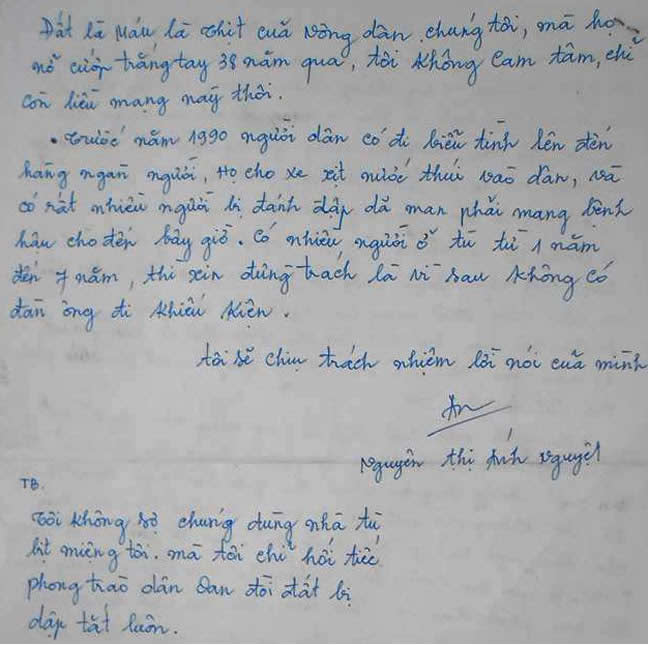 Đất là Máu là Thịt của Nông dân chúng tôi, mà họ
nỡ cướp trắng tay 38 năm qua, tôi không Cam tâm, chỉ
còn liều mạng nầy thôi.
• Trước năm 1990 người dân có đi biểu tình lên đến
hàng ngàn người, Họ cho xe xịt nước thúi vào dân, và
có rất nhiều người bị đánh đập dã man phải mang bệnh
hậu cho đến bây giờ. Có nhiều người ở tù từ 1 năm
đến 7 năm, thì xin đừng trách là vì sau không có
đàn ông đi khiếu kiện.
tôi sẽ chịu trách nhiệm lời nói của mình
An
Nguyễn thị Ánh Nguyệt
TB.
Tôi không sợ chúng dùng nhà tù
bịt miệng tôi. mà tôi chỉ hối tiếc
phong trào dân Oan đòi đất bị
dập tắt luôn.